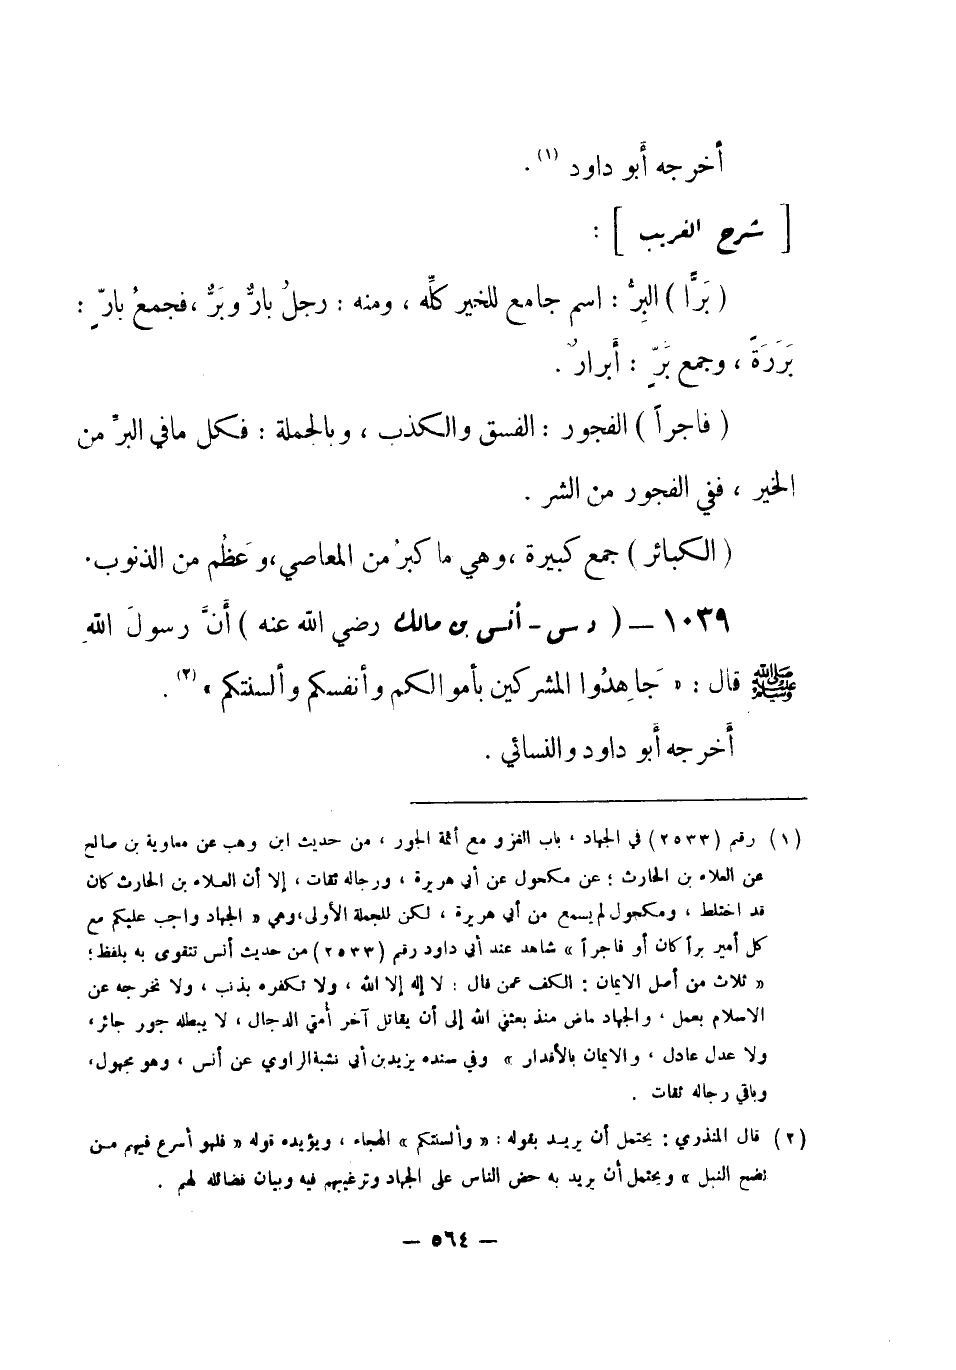 أخرجه أبو داود (١) .
[ شرح الغريب ] :
( بَرًّا ) البِرُّ : اسم جامع للخير كلِّه ، ومنه : رجلُ بارٌّ وبَرٌّ ، فجمعُ بارّ :
بَرَرَةٌ ، وجمع بَرّ : أبرارٌ .
( فاجراً ) الفجور : الفسق والكذب ، وبالجملة : فكل مافي البرِّ من
الخير ، ففي الفجور من الشر .
( الكبائر ) جمع كبيرة ، وهي ما كبرُ من المعاصي ، وعَظُم من الذنوب .
١٠٣٩ – ( د س - أنس بن مالك رضي الله عنه ) أنَّ رسولَ اللهِ
ﷺ قال : « جَاهِدُوا المشركين بأموالكم وأنفسكم وألسنتكم » (٢) .
أخرجه أبو داود والنسائي .
(١) رقم (٢٥٣٣) في الجهاد ، باب الغزو مع أئمة الجور ، من حديث ابن وهب عن معاوية بن صالح
عن العلاء بن الحارث ؛ عن مكحول عن أبي هريرة ، ورجاله ثقات ، إلا أن العلاء بن الحارث كان
قد اختلط ، ومكحول لم يسمع من أبي هريرة ، لكن للجملة الأولى ، وهي « الجهاد واجب عليكم مع
كل أمير براً كان أو فاجراً » شاهد عند أبي داود رقم (٢٥٣٣) من حديث أنس تتقوى به بلفظ ؛
« ثلاث من أصل الايمان : الكف عمن قال : لا إله إلا الله ، ولا نكفره بذنب ، ولا نخرجه عن
الاسلام بعمل ، والجهاد ماض منذ بعثني الله إلى أن يقاتل آخر أُمتي الدجال ، لا يبطله جور جائر ،
ولا عدل عادل ، والايمان بالأقدار » وفي سنده يزيد بن أبي نشبة الراوي عن أنس ، وهو مجهول ،
وباقي رجاله ثقات .
(٢) قال المنذري : يحتمل أن يريد بقوله : « وألسنتكم » الهجاء ، ويؤيده قوله « فلهو أسرع فيهم من
نضح النبل » ويحتمل أن يريد به حض الناس على الجهاد وترغيبهم فيه وبيان فضائله لهم .
– ٥٦٤ –